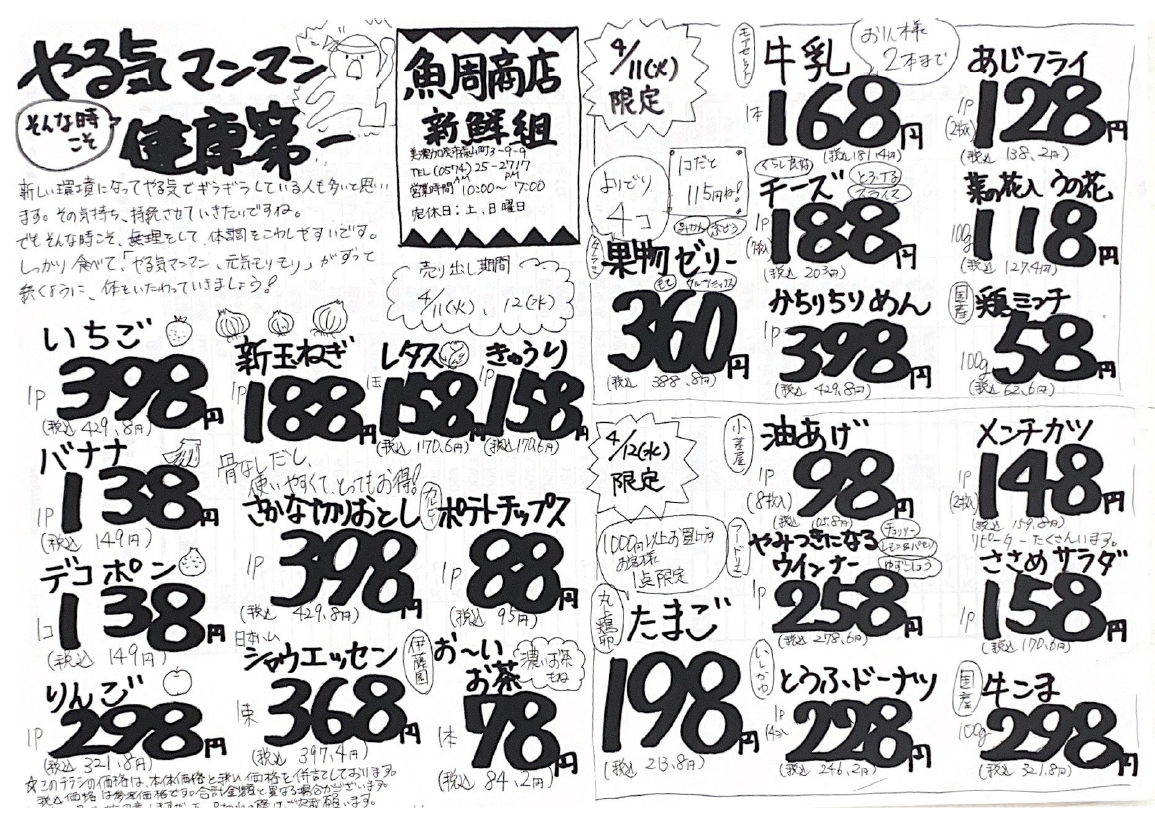 やる気マンマン
そんな時こそ
健康第一
新しい環境になってやる気でギラギラしている人も多いと思い
ます。その気持ち、持続させていきたいですね。
でもそんな時こそ、無理をして体調をこわしやすいです。
しっかり食べて、「やる気マンマン、元気モリモリ」がずって
続くように、体をいたわっていきましょう!
魚周商店
新鮮組
美濃加茂市森山町3-9-9
TEL (0574) 25-2717
営業時間 AM 10:00~PM 7:00
定休日:土、日曜日
売り出し期間
4/11(火)、12(水)
いちご
1P 398円
(税込 429.8円)
バナナ
1P 138円
(税込 149円)
デコポン
1コ 138円
(税込 149円)
りんご
1P 298円
(税込 321.8円)
新玉ねぎ
1P 188円
レタス
1玉 158円
(税込 170.6円)
きゅうり
1P 158円
(税込 170.6円)
骨なしだし、
使いやすくて、とってもお得!
さかな切りおとし
1P 398円
(税込 429.8円)
カルビー
ポテトチップス
1P 88円
(税込 95円)
日本ハム
シャウエッセン
1束 368円
(税込 397.4円)
伊藤園
お~いお茶
濃いお茶もね
1本 78円
(税込 84.2円)
☆このチラシの価格は、本体価格と税込価格を併記しております。
税込価格は参考価格です。合計金額と異なる場合がございます。
4/11(火)
限定
牛乳
お1人様
2本まで
1本 168円
(税込 181.4円)
あじフライ
1P (2枚) 128円
(税込 138.2円)
よりどり
4コ
1コだと
115円ね!
みかん
ぶどう
果物ゼリー
もも
フルーツミックス
360円
(税込 388.8円)
くらし良好
チーズ
とろける
スライス
1P (7枚) 188円
(税込 203円)
菜の花入うの花
100g 118円
(税込 127.4円)
かちりちりめん
1P 398円
(税込 429.8円)
国産
鶏ミンチ
100g 58円
(税込 62.6円)
4/12(水)
限定
油あげ
1P (8枚入) 98円
(税込 105.8円)
メンチカツ
1P (2枚) 148円
(税込 159.8円)
リピーターたくさんいます。
1000円以上お買上げの
お客様
1点限定
たまご
198円
(税込 213.8円)
やみつきになる
ウインナー
チョリソー
レモン&パセリ
ゆずこしょう
1P 258円
(税込 278.6円)
ささめサラダ
1P 158円
(税込 170.6円)
いしがゆ
とうふドーナツ
1P (4コ入) 228円
(税込 246.2円)
国産
牛こま
100g 298円
(税込 321.8円)